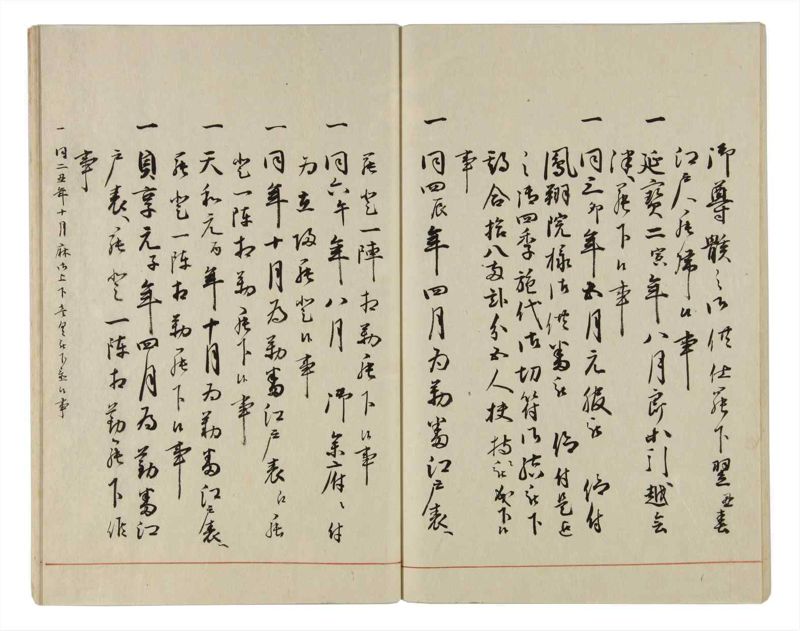 御尊骸之御供仕罷下翌丑春
江戸へ罷帰候事
一 延寳二寅年八月郎本引越会
津罷下候事
一 同三卯年五月元服被 仰付
鳳翔院様御供番被 仰付是迄
之御四季施代御切符御結被下
都合拾八両弐分五人扶持被成下候
事
一 同四辰年四月為勤番江戸表へ
罷登一陣相勤罷下候事
一 同六午年八月 御参府ニ付
為立帰罷登候事
一 同年十月為勤番江戸表江罷
登一陣相勤罷下候事
一 天和元酉年十月為勤番江戸表へ
罷登一陣相勤罷下候事
一 貞享元子年四月為勤番江
戸表へ罷登一陣相勤罷下候
事
一 同二丑年十月麻御上下